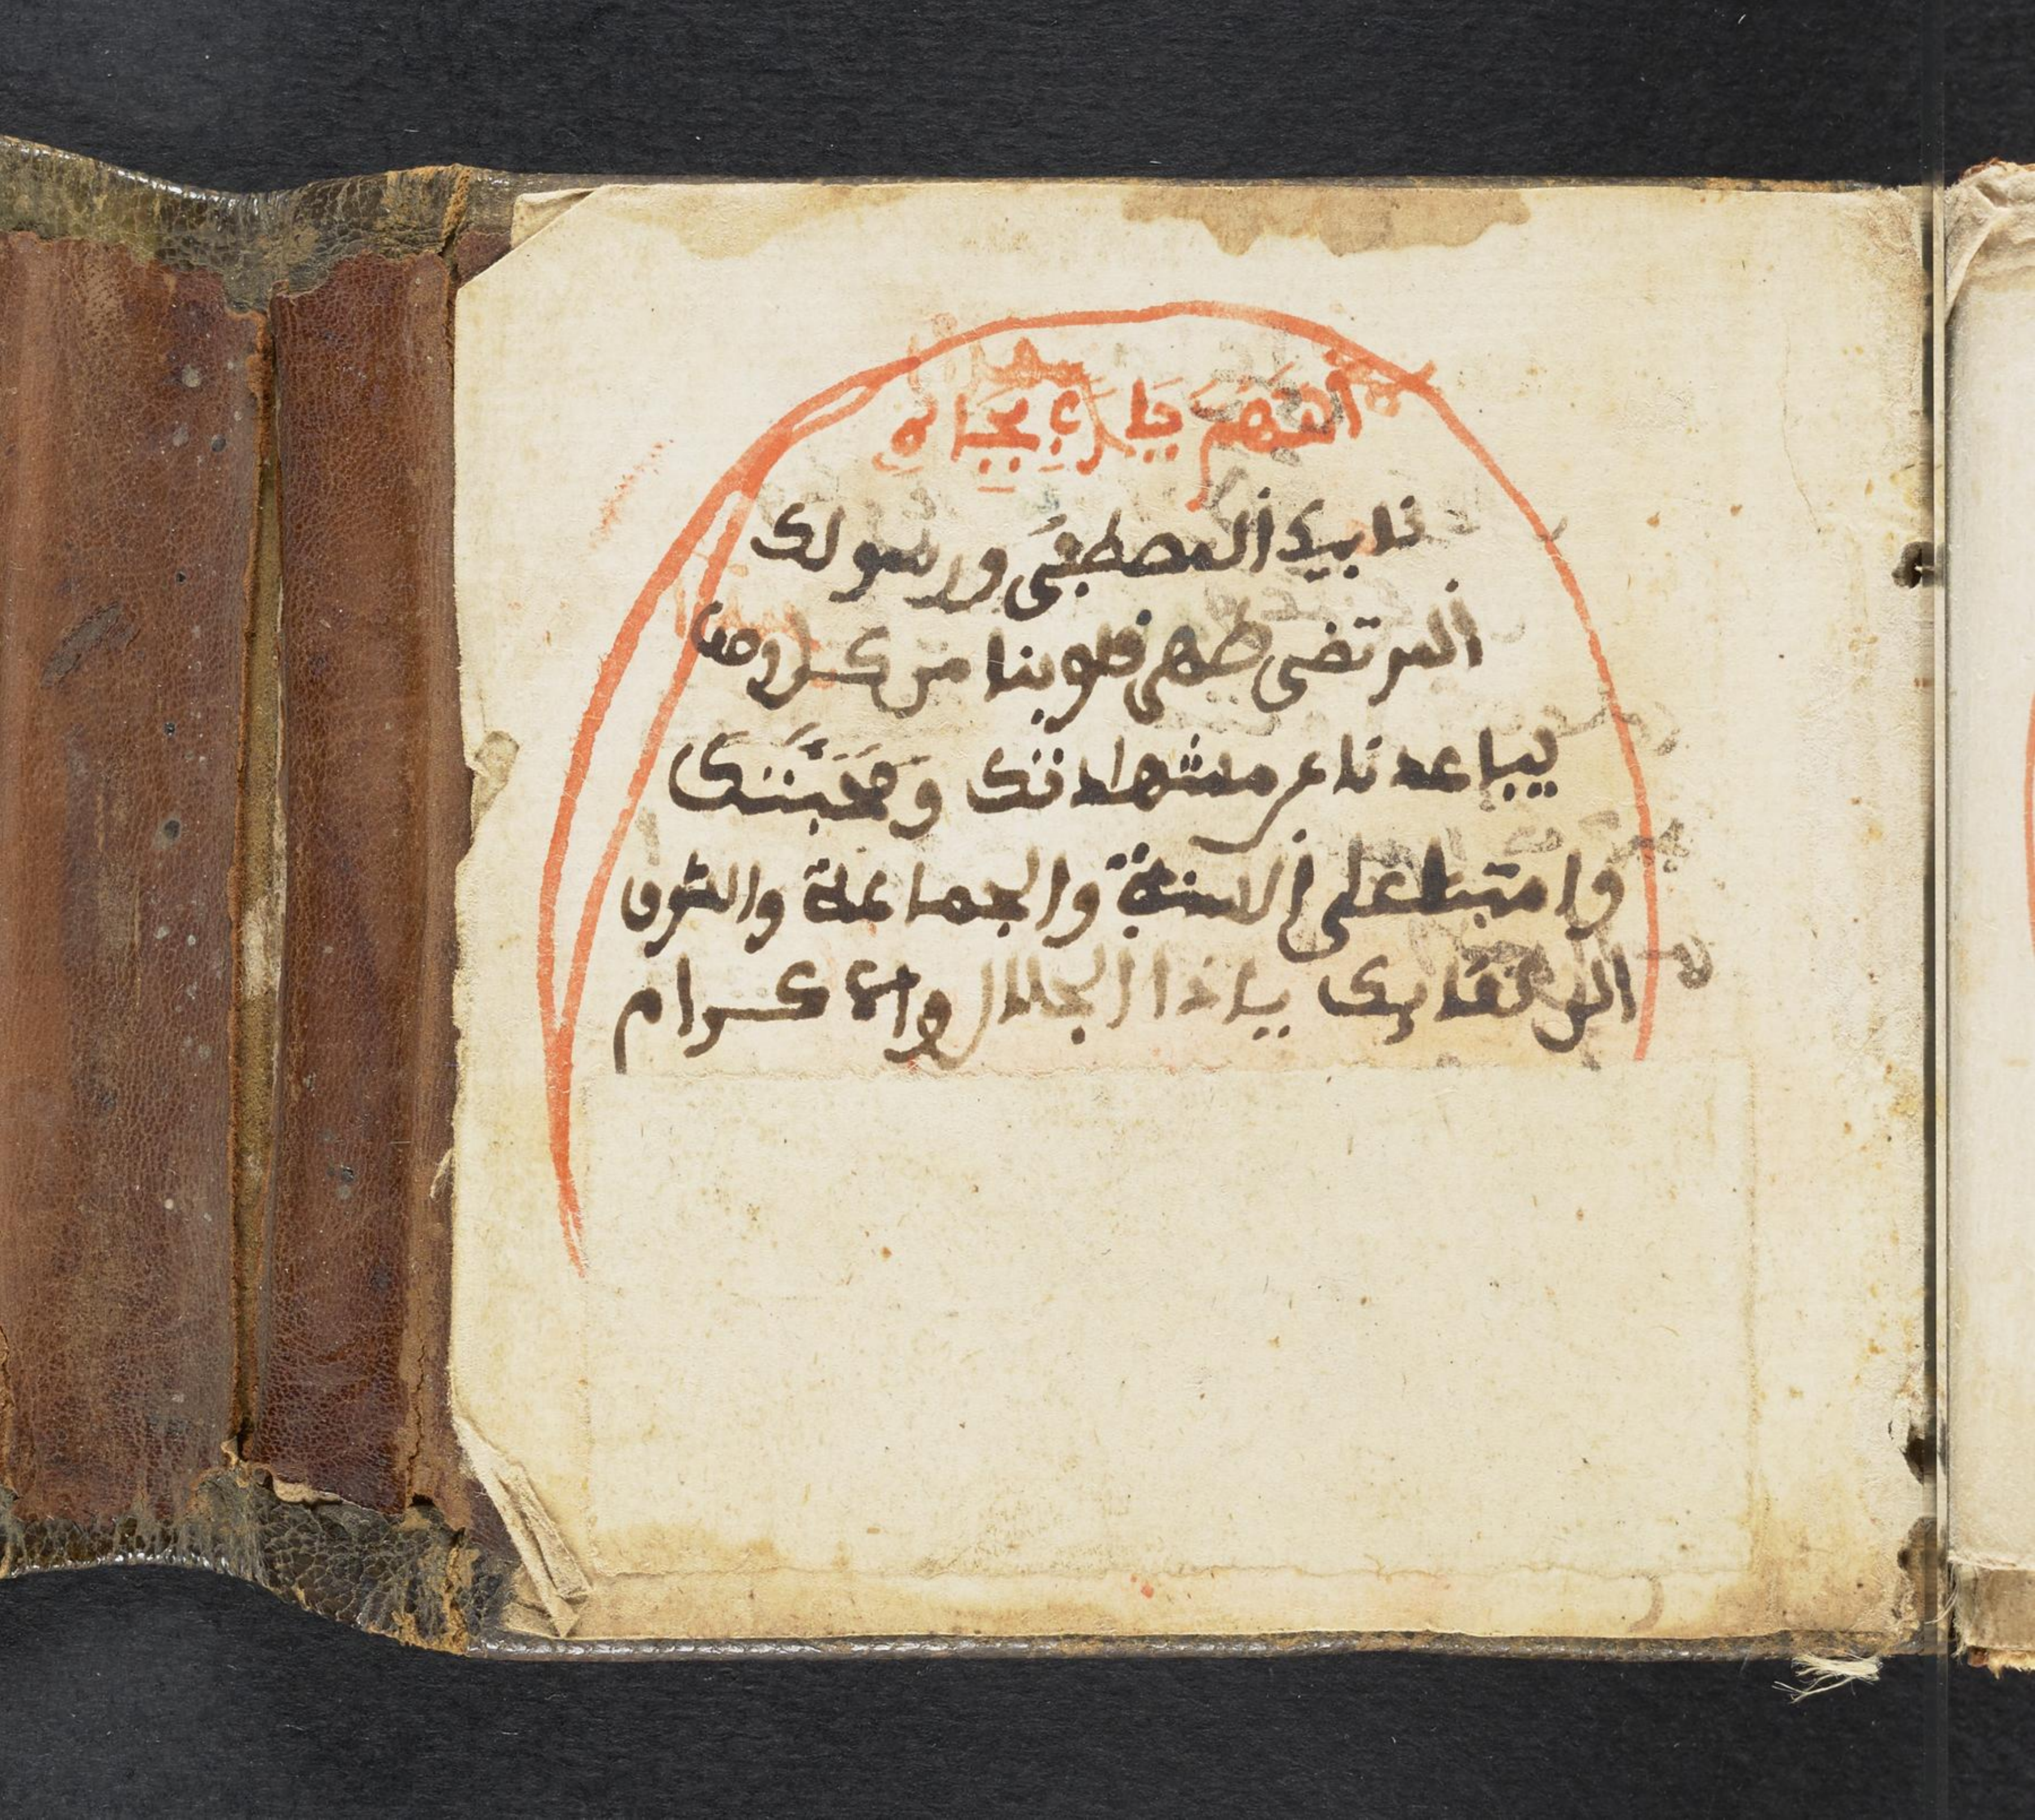 اللهم يا رب بجاه
نابيك المصطفى ورسولك
المرتضى طهر قلوبنا من كل وصف
يباعدنا عن مشهادتك ومحبتك
وامتنا على السنة والجماعة والشوق
الى لقائك ياذا الجلال والاكرام